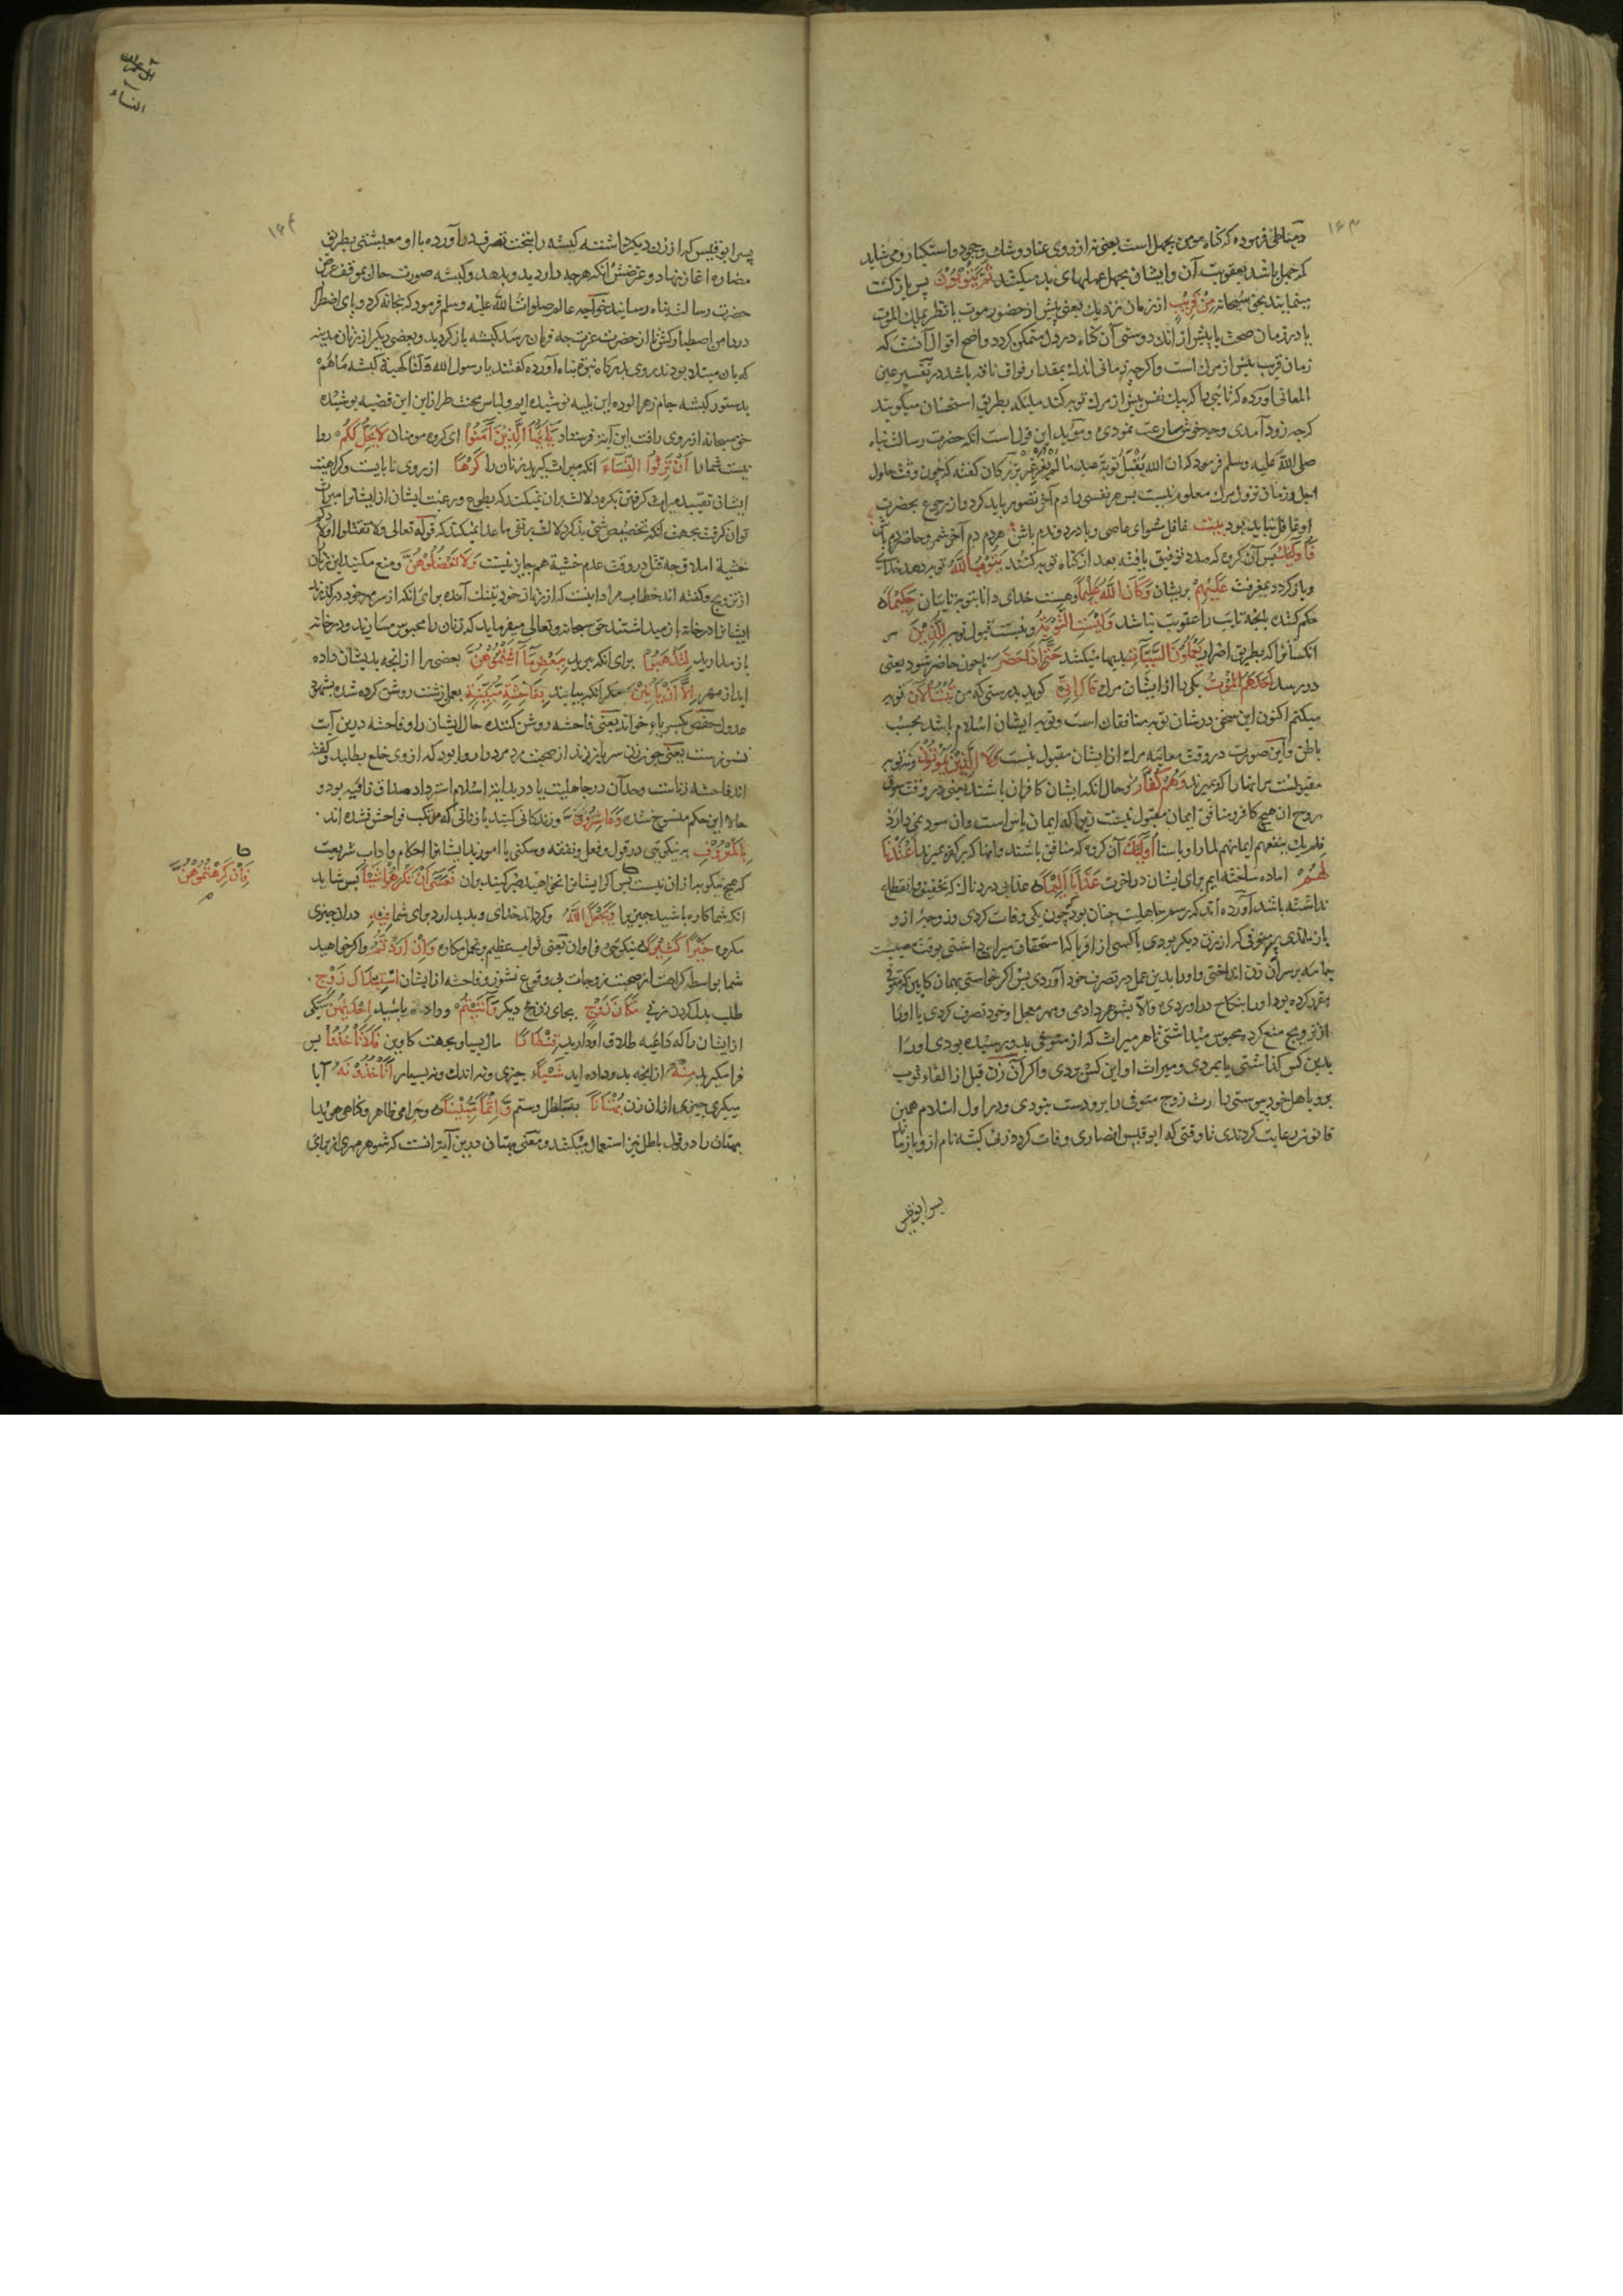 ۱۶۳
دمیاطی فرموده که گناه مومن بجهل است یعنی نه از روی عناد و شک و جحود و استکبار و می شاید
که جهل باشد بعقوبت آن و ایشان بجهل عملهای بد میکنند ثُمَّ یَتُوبُونَ پس بازگشت
مینمایند بحق سبحانه مِنْ قَرِیبٍ از زمان نزدیک یعنی پیش از حضور موت یا نظر بملک الموت
یا در زمان صحت یا پیش از آنکه دوستی آن گناه در دل متمکن گردد و اصح اقوال آنست که
زمان قریب پیش از مرک است و اگرچه زمانی اندک بمقدار فواق ناقه باشد در تفسیر عین
المعانی آورده که تائبی را که بیک نفس پیش از مرک توبه کند ملائکه بطریق استحسان میگویند
که چه زود آمدی و چه خوش مسارعت نمودی و مؤید این قول است آنکه حضرت رسالت پناه
صلی الله علیه وسلم فرمود که ان الله یقبل توبة عبده ما لم یغرغر بزرکان گفته که چون وقت حلول
اجل و زمان نزول مرک معلوم نیست پس هر نفسی را دم آخر تصور باید کرد و از رجوع بحضرت
او غافل نباید بود بیت غافل مشو ای عاصی و با درد و ندم باش هر دم دم آخر شمر و حاضر دم باش
فَأُولٰئِكَ پس آن گروه که مدد توفیق یافته بعد از گناه توبه کنند یَتُوبُ اللهُ توبه دهد خدای
و باز گردد بمغفرت عَلَیْهِمْ بریشان وَكَانَ اللهُ عَلِیمًا و هست خدای دانا بتوبه تایبان حَكِیمًا
حکم کننده بانچه تایب را عقوبت نباشد وَلَیْسَتِ التَّوْبَةُ و نیست قبول توبه لِلَّذِینَ مر
آنکسانرا که بطریق اصرار یَعْمَلُونَ السَّیِّئَاتِ بدیها میکنند حَتّٰی إِذَا حَضَرَ تا چون حاضر شود یعنی
در رسد أَحَدَهُمُ الْمَوْتُ یکی را از ایشان مرک قَالَ إِنِّی گوید بدرستی که من تُبْتُ الْآنَ توبه
میکنم اکنون این سخن در شان توبه منافقان است و توبه ایشان اسلام باشد بحسب
باطن و این صورت در وقت معاینه مرک از ایشان مقبول نیست وَلَا الَّذِینَ یَمُوتُونَ و نه توبه
مقبولست مر آنها را که بمیرند وَهُمْ كُفَّارٌ و حال آنکه ایشان کافران باشند یعنی در وقت سوق
روح از هیچ کافر و منافق ایمان مقبول نیست زیرا که ایمان یاس است و آن سود نمی دارد
فلم یک ینفعهم ایمانهم لما راوا باسنا أُولٰئِكَ آن گروه که منافق باشند و آنها که بر کفر بمیرند أَعْتَدْنَا
لَهُمْ اماده ساخته ایم برای ایشان در اخرت عَذَابًا أَلِیمًا عذابی دردناک که تخفیف و انقطاع
نداشته باشد آورده اند که رسم جاهلیت چنان بود که چون یکی وفات کردی و زوجهٔ از و
باز ماندی پسر متوفی که از زن دیگر بودی یا کسی از اقربا که استحقاق میراث داشتی بوقت مصیبت
جامه بر سر آن زن انداختی و او را بدین عمل در تصرف خود آوردی پس اگر خواستی بهمان کابین که متوفی
مقرر کرده بود او را بنکاح در آوردی و الا بشوهر دادی و مهر معجل او خود تصرف کردی یا او را
از تزویج منع کرده محبوس میداشتی تا هر میراث که از متوفی بدو رسیده بودی او را
بدین کس گذاشتی یا بمردی و میراث او این کس بردی و اگر آن زن قبل از القاء ثوب
برو با هل خود پیوستی وارث زوج متوفی را برو دست نبودی و در اول اسلام همین
قانون رعایت کردندی تا وقتی که ابوقیس انصاری وفات کرد زنی کبشه نام از و باز ماند
پسر ابوقیس
آل عمران
النساء
۱۶۴
پسر ابوقیس که از زن دیگر داشت کبشه را بتحت تصرف در آورده با او معیشتی بطریق
مضاره آغاز نهاد و غرضش آنکه هرچه دارد بدو بدهد و کبشه صورت حال بموقف عرض
حضرت رسالت پناه رسانید خواجه عالم صلوات الله علیه وسلم فرمود که بخانه گرد و پای اضطرار
در دامن اصطبار کش تا از حضرت عزت چه فرمان رسد کبشه باز گردید و بعضی دیگر از زنان مدینه
که بان مبتلا بودند روی بدرگاه نبوت پناه آورده گفتند یا رسول الله و کلنا کهیئة کبشه ما هم
بدستور کبشه جام زهر آلوده این بلیه نوشیده ایم و لباس محنت طراز این قضیه پوشیده
حق سبحانه از روی رافت این آیت فرستاد یَا أَیُّهَا الَّذِینَ آمَنُوا ای گروه مومنان لَا یَحِلُّ لَكُمْ روا
نیست شما را أَنْ تَرِثُوا النِّسَاءَ آنکه میراث گیرید زنان را كَرْهًا از روی نابایست و کراهیت
ایشان تقیید میراث گرفتن بکره دلالت بر آن نمیکند که بطوع و رغبت ایشان از ایشان میراث
توان گرفت بجهت آنکه تخصیص شی بذکر دلالت بر نفی ما عدا نمیکند که قوله تعالی ولا تقتلوا اولادکم
خشیة املاق چه قتل در وقت عدم خشیة هم جایز نیست وَلَا تَعْضُلُوهُنَّ و منع مکنید این زنان
از تزویج و گفته اند خطاب مر
ایشانرا در خانه باز میداشتند حق سبحانه و تعالی میفرماید که زنان را محبوس مسازید و در خانه
باز مدارید لِتَذْهَبُوا برای آنکه ببرید بِبَعْضِ مَا آتَیْتُمُوهُنَّ بعضی را از آنچه بدیشان داده
اید از مهر إِلَّا أَنْ یَأْتِینَ مگر آنکه بیایند بِفَاحِشَةٍ مُبَیِّنَةٍ بعمل زشت روشن کرده شده بشهود
عدول حفص بکسر یاء خواند یعنی فاحشه روشن کننده حال ایشان را و فاحشه درین آیت
نشوزست یعنی چون زن سر باز زند از صحبت مرد مرد را روا بود که از وی خلع بطلبد و گفته
اند فاحشه زناست و حد آن در جاهلیت یا در بدایت اسلام استرداد صداق زانیه بود و
حالا این حکم منسوخ شده وَعَاشِرُوهُنَّ و زندگانی کنید با زنانی که مرتکب فواحش نشده اند
بِالْمَعْرُوفِ به نیکویی در قول و فعل و نفقه و سکنی یا اموزید ایشانرا احکام و اداب شریعت
که هیچ نیکویی به از آن نیست پس اگر ایشانرا نخواهید صبر کنید بران فَعَسٰی أَنْ تَكْرَهُوا شَیْئًا پس شاید
فَإِنْ كَرِهْتُمُوهُنَّ
آنکه شما کاره باشید چیزیرا وَیَجْعَلَ اللهُ و گرداند خدای و پدید ارد برای شما فِیهِ در ان چیزی
مکروه خَیْرًا كَثِیرًا نیکویی فراوان یعنی ثواب عظیم و تحمل مکاره وَإِنْ أَرَدْتُمُ و اگر خواهید
شما بواسطه کراهت از صحبت زوجات بی وقوع نشوز و فاحشه از ایشان اسْتِبْدَالَ زَوْجٍ
طلب بدل کردن زنی مَكَانَ زَوْجٍ بجای زن دیگر وَآتَیْتُمْ و داده باشید إِحْدٰیهُنَّ یکی
از ایشان را که داعیه طلاق او دارید قِنْطَارًا مال بسیار بجهت کابین فَلَا تَأْخُذُوا پس
فرا مگیرید مِنْهُ از آنچه بدو داده اید شَیْئًا چیزی و نه اندک و نه بسیار أَتَأْخُذُونَهُ آیا
میگیری چیزی از ان زن بُهْتَانًا بباطل و ستم وَإِثْمًا مُبِینًا و جرمی ظاهر و گناهی هویدا
بهتان را در قول باطل نیز استعمال میکنند و معنی بهتان درین آیت آنست که شوهر مهری از برای